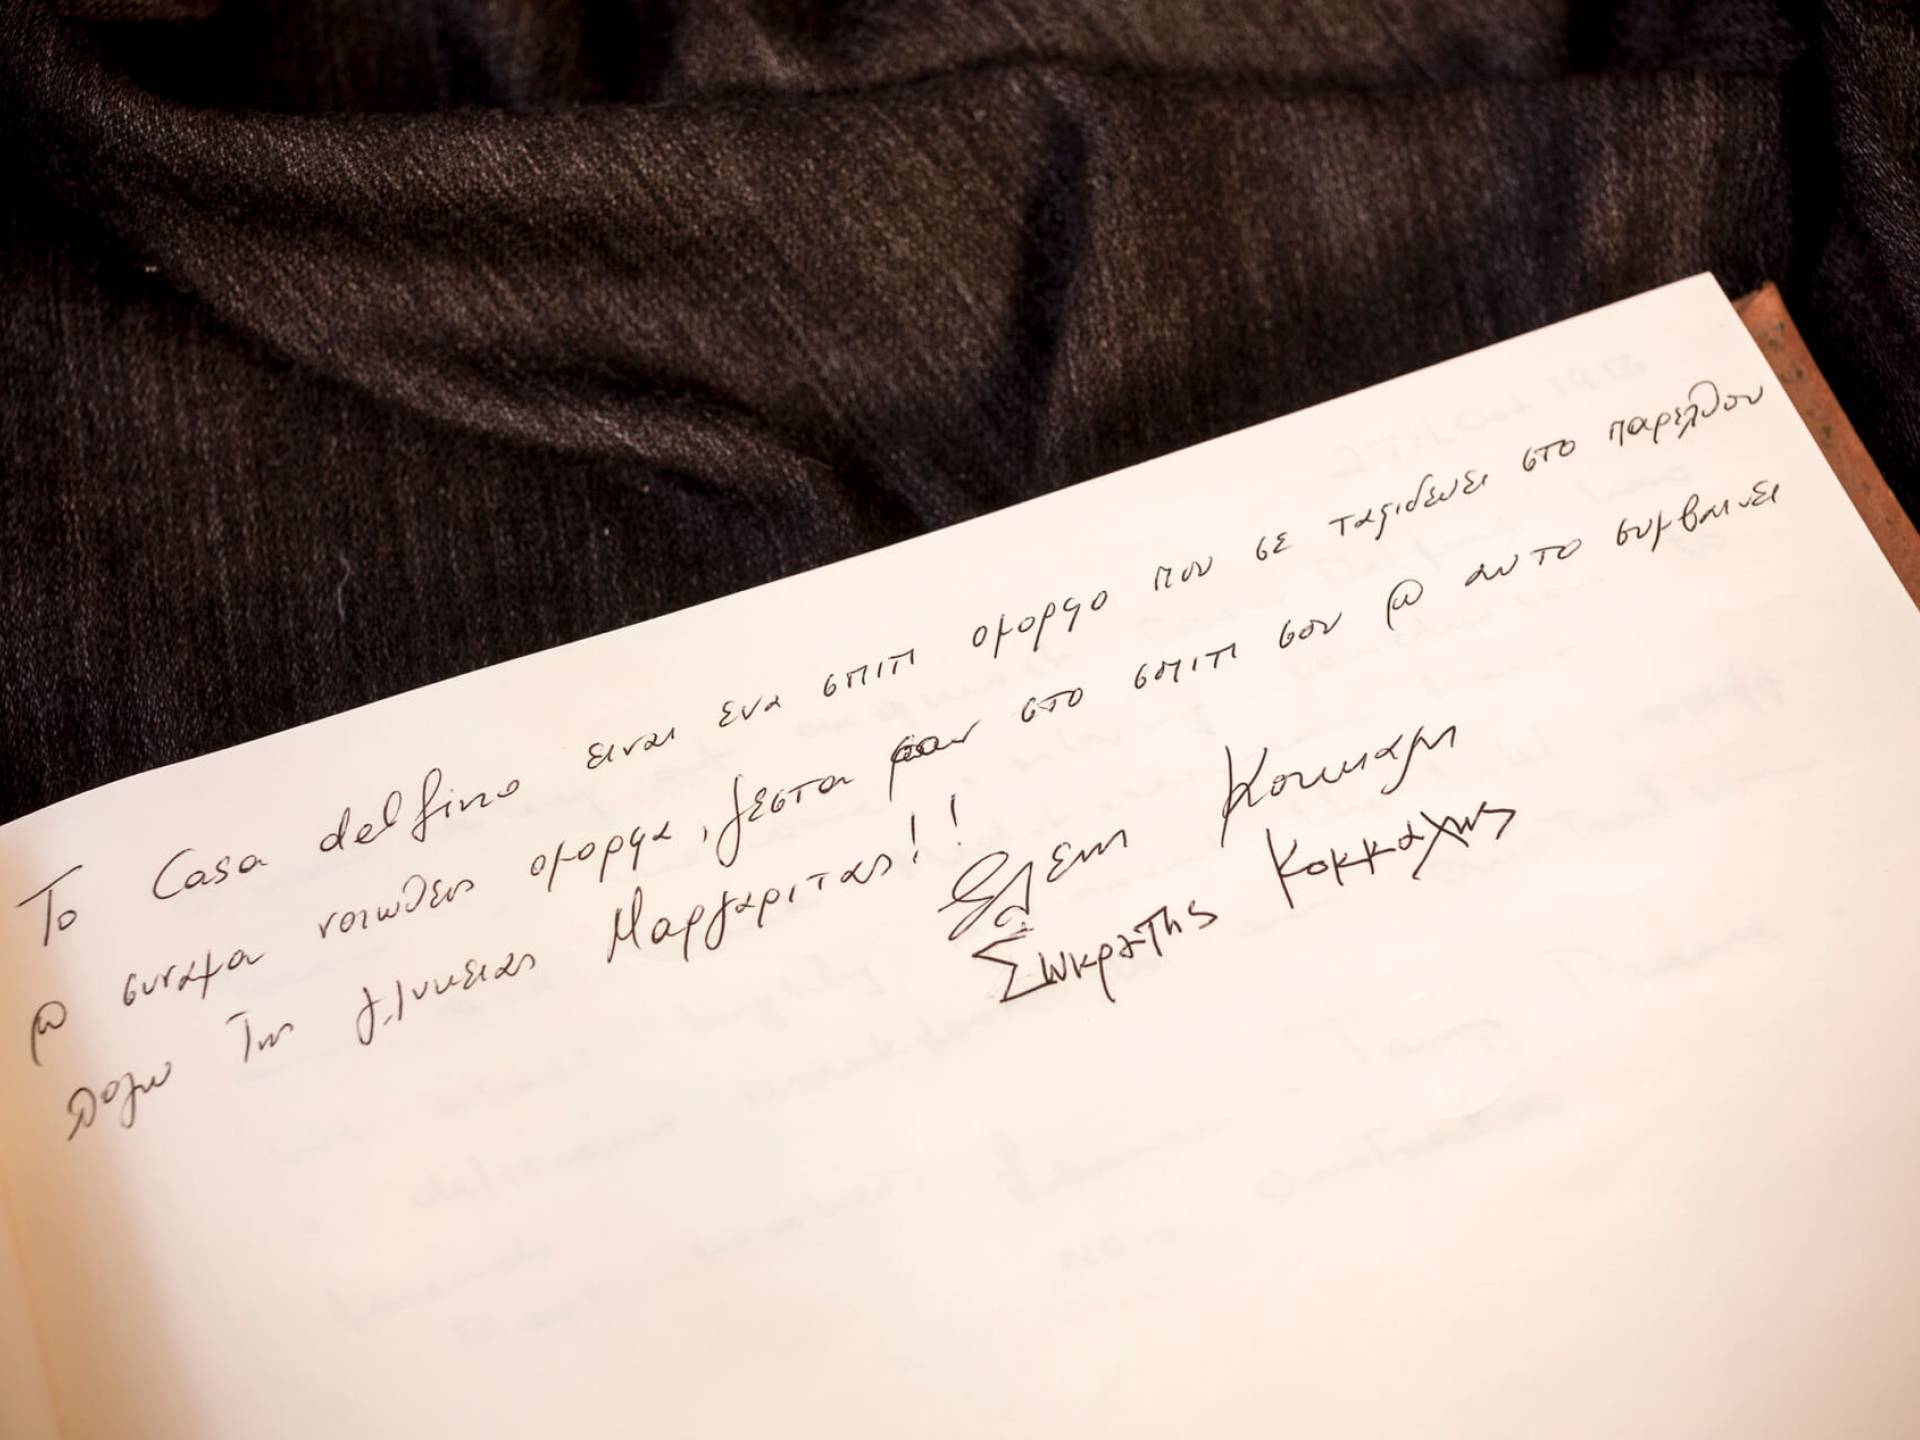 Το Casa delfino ειναι ενα σπιτι ομορφο που σε ταξιδευει στο παρελθον
@ συναμα νοιωθεις ομορφα, ζεστα σαν στο σπιτι σου @ αυτο συμβαινει
λογω της γλυκειας Μαργαριτας!!
Ελενη Κοκκαλη
Σωκρατης Κοκκαλης